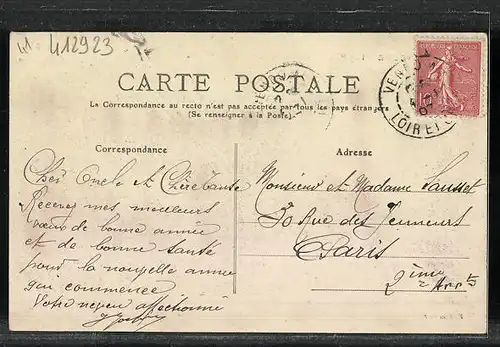 412923
CARTE POSTALE
La Correspondance au recto n'est pas acceptée par tous les pays étrangers
(Se renseigner à la Poste).
Correspondance
Cher Oncle et Chère Tante
Recevez mes meilleurs
vœux de bonne année
et de bonne santé
pour la nouvelle année
qui commence
Votre neveu affectionné
Adresse
Monsieur et Madame Sausset
30 Rue des Jeuneurs
Paris
2ème Arrt
LOIR ET